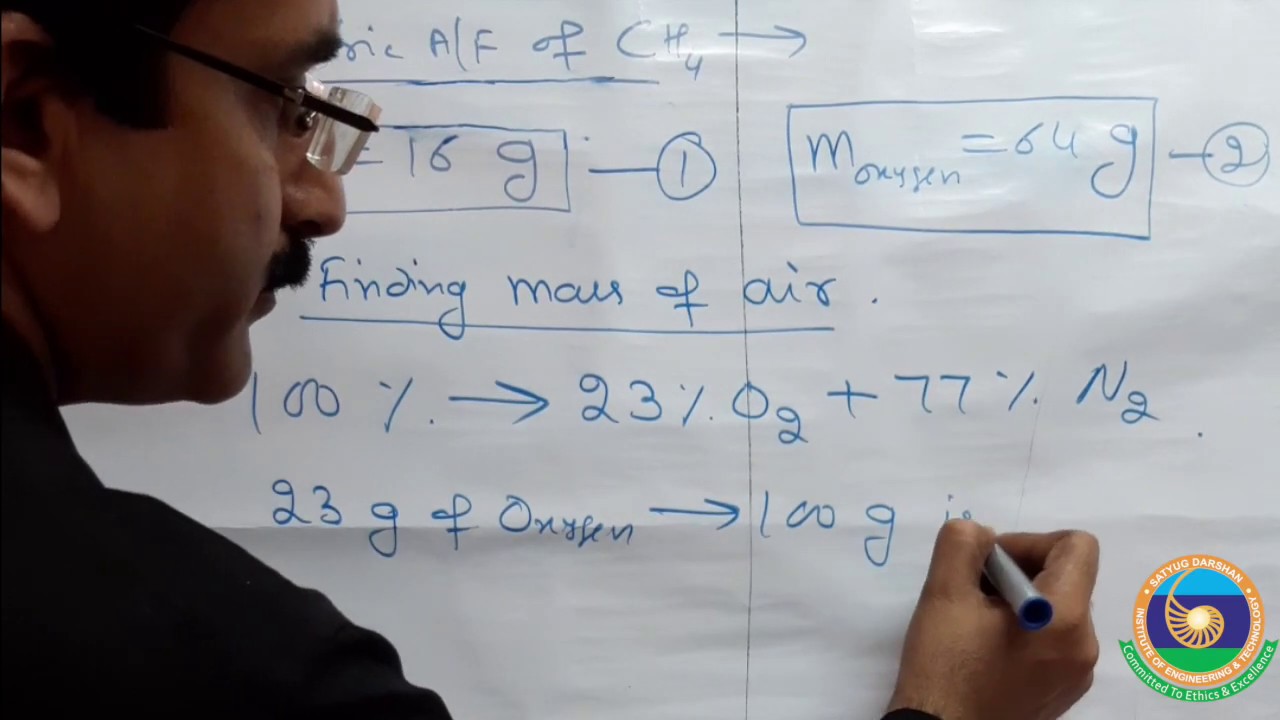 ric A/F of CH4 →
= 16 g — 1
m oxygen = 64 g — 2
Finding mass of air.
100 % . → 23 % . O2 + 77 % . N2
23 g of Oxygen → 100 g
SATYUG DARSHAN
INSTITUTE OF ENGINEERING & TECHNOLOGY
Committed To Ethics & Excellence